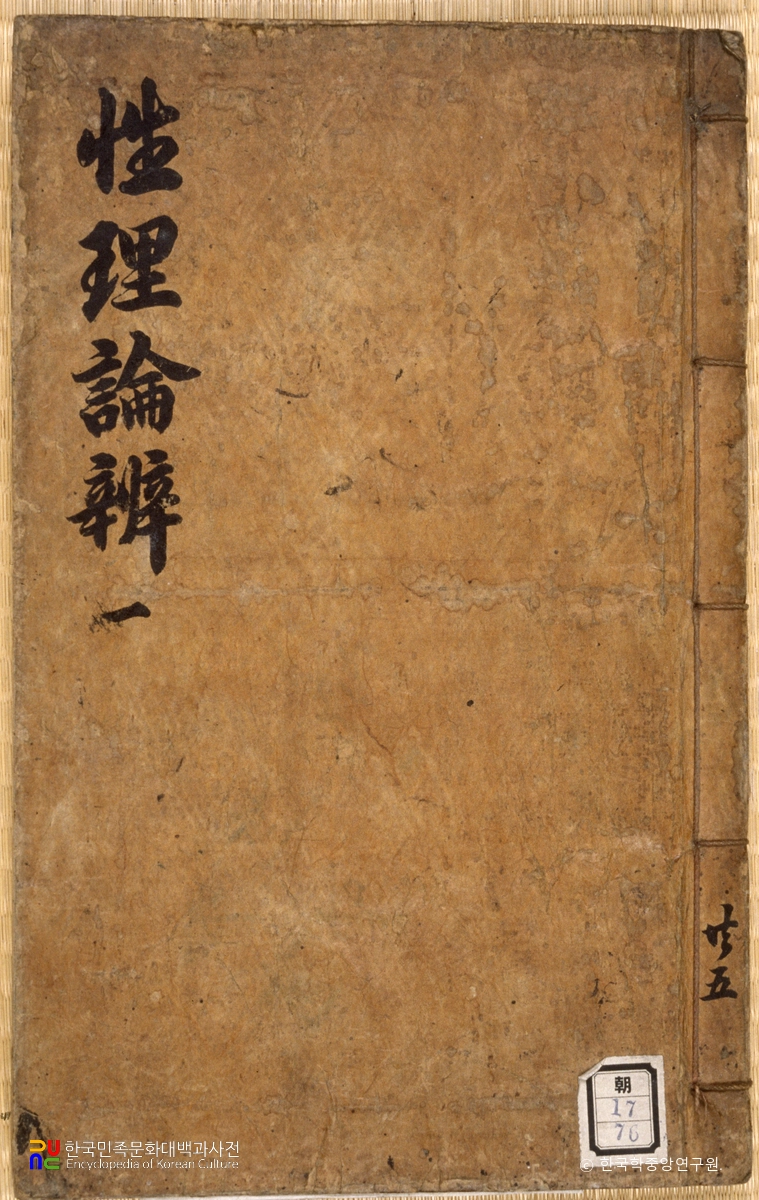 性理論辨一
共五
朝
17
76
한국민족문화대백과사전
Encyclopedia of Korean Culture
© 한국학중앙연구원